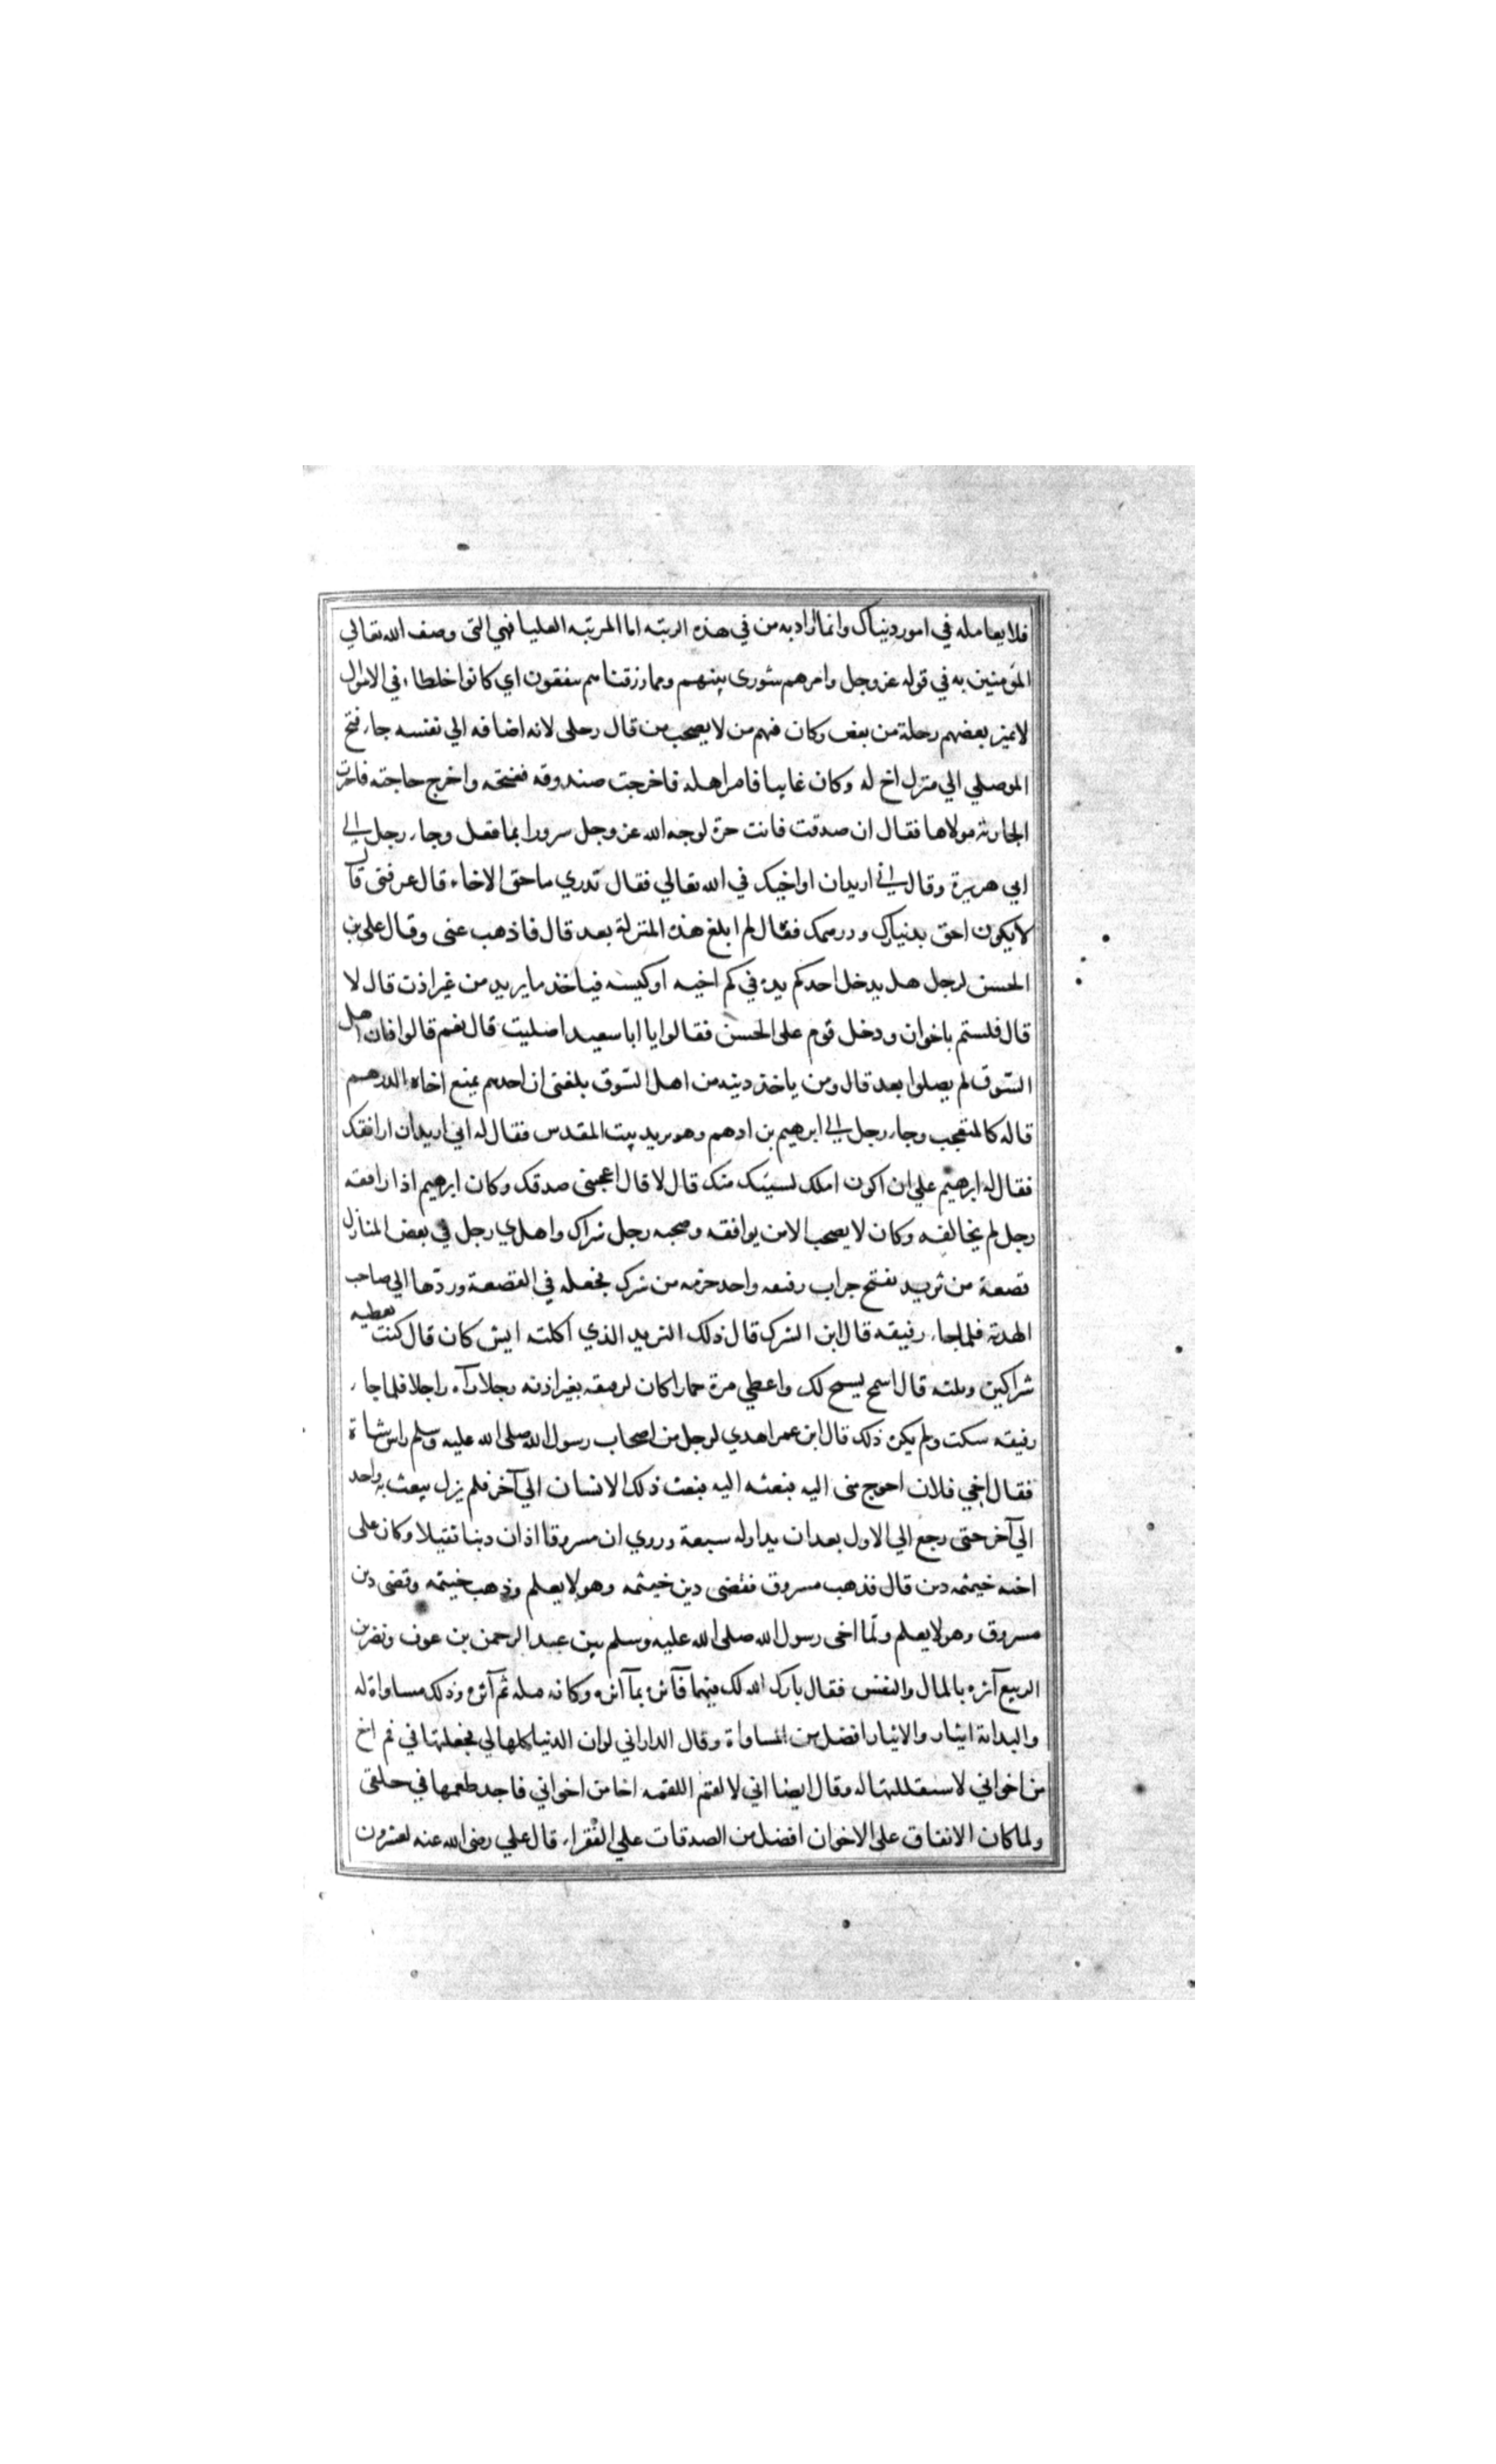 فلا يعامله في امور دنياك وانما اراد به من في هذه الرتبه اما المرتبه العليا فهي التي وصف الله تعالي
المؤمنين به في قوله عز وجل وامرهم شورى بينهم ومما رزقناهم ينفقون اي كانوا خلطاء في الاموال
لا يميز بعضهم رحلة من بعض وكان فيهم من لا يصحب من قال رحلى لانه اضافه الي نفسه جاء فتح
الموصلي الي منزل اخ له وكان غايبا فامر اهله فاخرجت صندوقه ففتحه واخرج حاجته فاخبرت
الجارية مولاها فقال ان صدقت فانت حرة لوجه الله عز وجل سرورا بما فعل وجاء رجل الي
ابي هريرة وقال اني اريد ان اواخيك في الله تعالي فقال تدري ما حق الاخاء قال عرفني قال
لا يكون احق بدينارك ودرهمك فقال لم ابلغ هذه المنزلة بعد قال فاذهب عني وقال علي بن
الحسين لرجل هل يدخل احدكم يده في كم اخيه او كيسه فياخذ ما يريد من غير اذن قال لا
قال فلستم باخوان ودخل قوم على الحسن فقالوا يا ابا سعيد اصليت قال نعم قالوا فان اهل
السوق لم يصلوا بعد قال ومن ياخذ دينه من اهل السوق بلغني ان احدهم يمنع اخاه الدرهم
قاله كالمتعجب وجاء رجل الي ابرهيم بن ادهم وهو يريد بيت المقدس فقال له اني اريد ان ارافقك
فقال له ابرهيم علي ان اكون املك لشيئك منك قال لا قال اعجبني صدقك وكان ابرهيم اذا رافقه
رجل لم يخالفه وكان لا يصحب الا من يوافقه وصحبه رجل شراك واهدي رجل في بعض المنازل
قصعة من ثريد ففتح جراب رفيقه واخذ حزمه من شرك فجعله في القصعة وردها الي صاحب
الهدية فلما جاء رفيقه قال اين الشرك قال ذلك الثريد الذي اكلته ايش كان قال كنت تعطيه
شراكين وثلثه قال اسمح يسمح لك واعطي مرة حمارا كان لرفيقه بغير اذنه رجلا رآه راجلا فلما جاء
رفيقه سكت ولم يكره ذلك قال ابن عمر اهدي لرجل من اصحاب رسول الله صلى الله عليه وسلم راس شاة
فقال اخي فلان احوج منى اليه فبعثه اليه فبعث ذلك الانسان الي آخر فلم يزل يبعث به واحد
الي آخر حتى رجع الي الاول بعد ان يداوله سبعة وروي ان مسروقا اذان دينا ثقيلا وكان على
اخيه خيثمه دين قال فذهب مسروق فقضى دين خيثمه وهو لا يعلم وذهب خيثمه وقضى دين
مسروق وهو لا يعلم ولما اخى رسول الله صلى الله عليه وسلم بين عبد الرحمن بن عوف ونضر بن
الربيع آثره بالمال والنفس فقال بارك الله لك فيهما فآثره بما آثره وكانه قبله ثم آثره وذلك مساواة له
والبداية ايثار والايثار افضل من المساواة وقال الداراني لو ان الدنيا كلها لي فجعلتها في فم اخ
من اخواني لاستقللتها له وقال ايضا اني لالقم اللقمه اخا من اخواني فاجد طعمها في حلقى
ولما كان الانفاق على الاخوان افضل من الصدقات علي الفقراء قال علي رضى الله عنه لعشرون